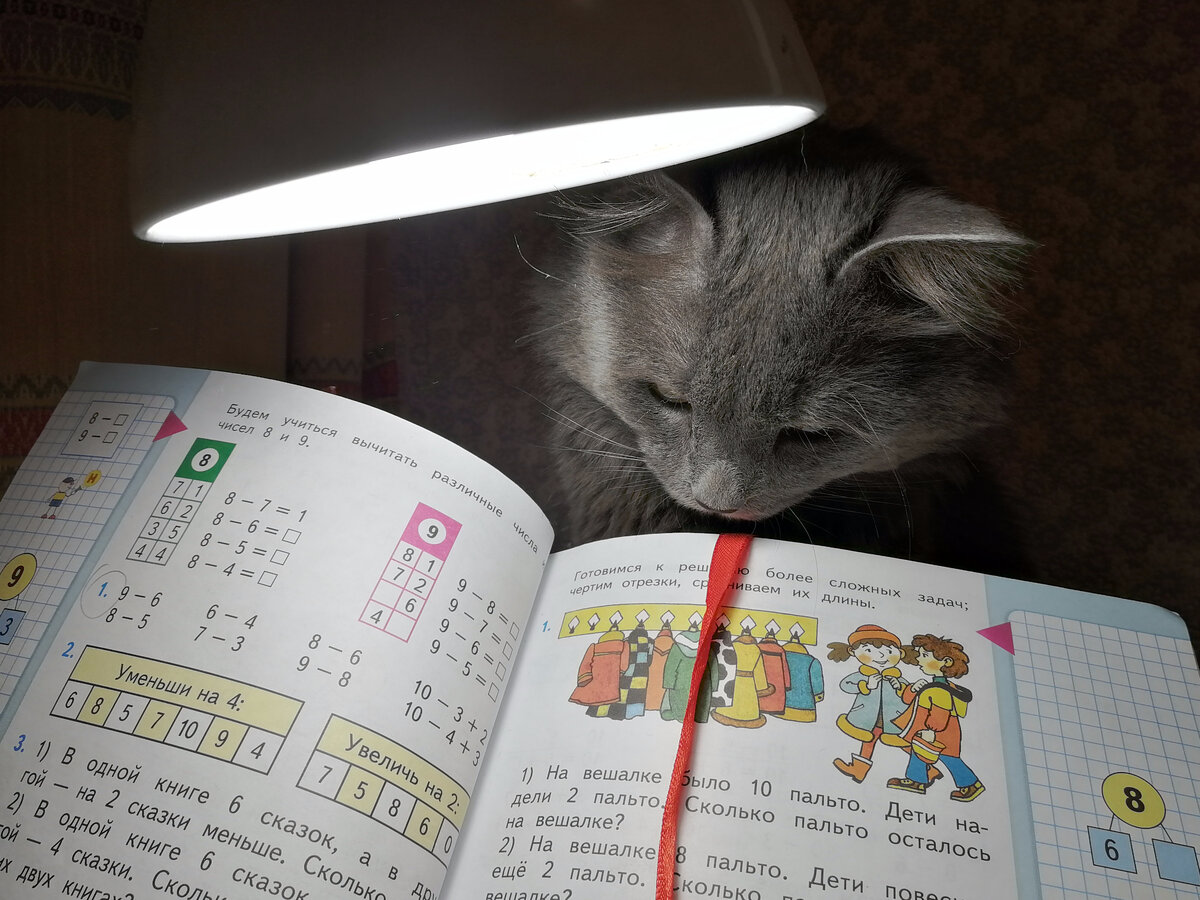 8 − □
9 − □
Н
9
3
Будем учиться вычитать различные числа
чисел 8 и 9.
8
7 1
6 2
3 5
4 4
8 − 7 = 1
8 − 6 = □
8 − 5 = □
8 − 4 = □
9
8 1
7 2
6
4
9 − 8 = □
9 − 7 = □
9 − 6 = □
9 − 5 = □
1. 9 − 6
8 − 5
6 − 4
7 − 3
8 − 6
9 − 8
10 − 3 + 2
10 − 4 + 3
2. Уменьши на 4:
6 8 5 7 10 9 4
Увеличь на 2:
7 5 8 6 0
3. 1) В одной книге 6 сказок, а в дру
гой — на 2 сказки меньше. Сколько
2) В одной книге 6 сказок
гой — 4 сказки. Сколь
двух книгах?
Готовимся к более сложных задач;
чертим отрезки, их длины.
1.
1) На вешалке было 10 пальто. Дети на-
дели 2 пальто. Сколько пальто осталось
на вешалке?
2) На вешалке 8 пальто. Дети повес
ещё 2 пальто. Сколько
вешалке?
8
6